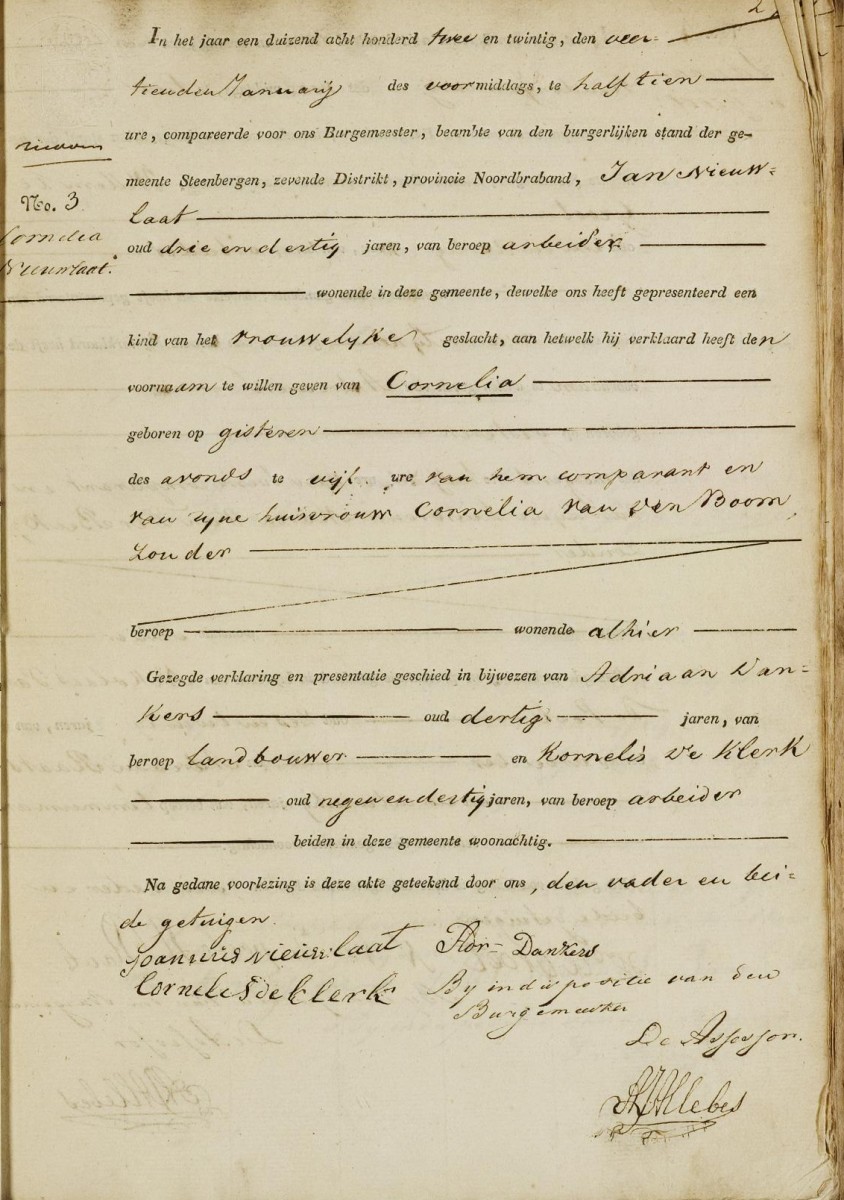 In het jaar een duizend acht honderd twee en twintig, den veer-
tienden Januarij des voormiddags, te half tien
ure, compareerde voor ons Burgemeester, beambte van den burgerlijken stand der ge-
meente Steenbergen, zevende Distrikt, provincie Noordbraband, Jan Nieuw-
laat
No. 3
Cornelia
Nieuwlaat.
oud drie en dertig jaren, van beroep arbeider
wonende in deze gemeente, dewelke ons heeft gepresenteerd een
kind van het vrouwelyke geslacht, aan hetwelk hij verklaard heeft den
voornaam te willen geven van Cornelia
geboren op gisteren
des avonds te vijf ure van hem comparant en
van zyne huisvrouw Cornelia van den Boom,
zonder
beroep wonende alhier
Gezegde verklaring en presentatie geschied in bijwezen van Adriaan Dan-
kers oud dertig jaren, van
beroep landbouwer en Kornelis de Klerk
oud negenendertig jaren, van beroep arbeider
beiden in deze gemeente woonachtig.
Na gedane voorlezing is deze akte geteekend door ons, den vader en bei-
de getuigen.
Joannis nieuwlaat Adr- Dankers
Cornelis de klerk By indispositie van den
Burgemeester
De Assessor.